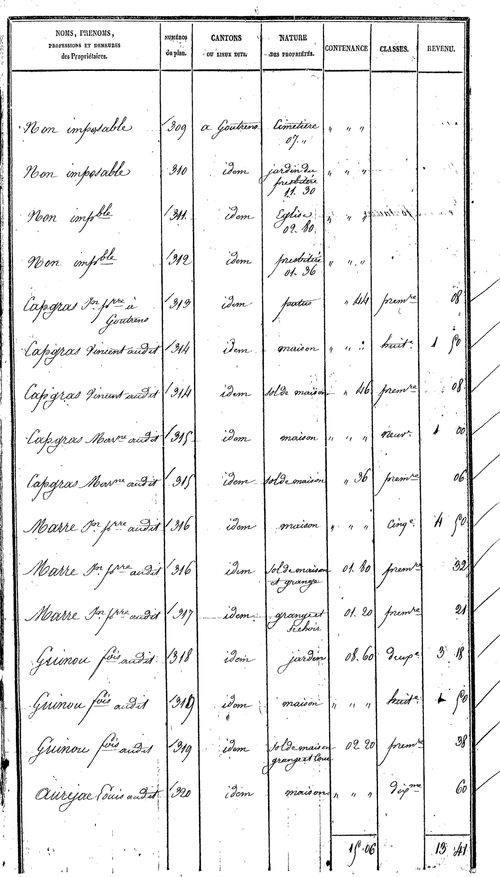 NOMS, PRENOMS, PROFESSIONS ET DEMEURES des Propriétaires. NUMÉROS du plan. CANTONS OU LIEUX DITS. NATURE DES PROPRIÉTÉS. CONTENANCE CLASSES. REVENU.
Non imposable 309 a Goutrens Cimetière " " "
07. "
Non imposable 310 idem jardin du " " "
presbitère
11. 30
Non impoble 311 idem Eglise " "
02. 80
Non impoble 312 idem presbitère " " "
01. 36
Capgras Jn prre à 313 idem " 44 premre 08
Goutrens
Capgras Vincent audit 314 idem maison " " " huite 1 50
Capgras Vincent audit 314 idem sol de maison " 46 premre 08
Capgras audit 315 idem maison " " " 1 00
Capgras audit 315 idem sol de maison " 36 premre 06
Marre Jn prre audit 316 idem maison " " " cinqe 4 50
Marre Jn prre audit 316 idem sol de maison 01. 80 premre 32
et grange
Marre Jn prre audit 317 idem grange et 01. 20 premre 21
séchoir
Guinou fois audit 318 idem jardin 08. 60 deuxe 3 18
Guinou fois audit 319 idem maison " " " huite 1 50
Guinou fois audit 319 idem sol de maison 02. 20 premre 38
grange et cour
Aurejac Louis audit 320 idem maison " " " dixme 60
15. 06 13. 41